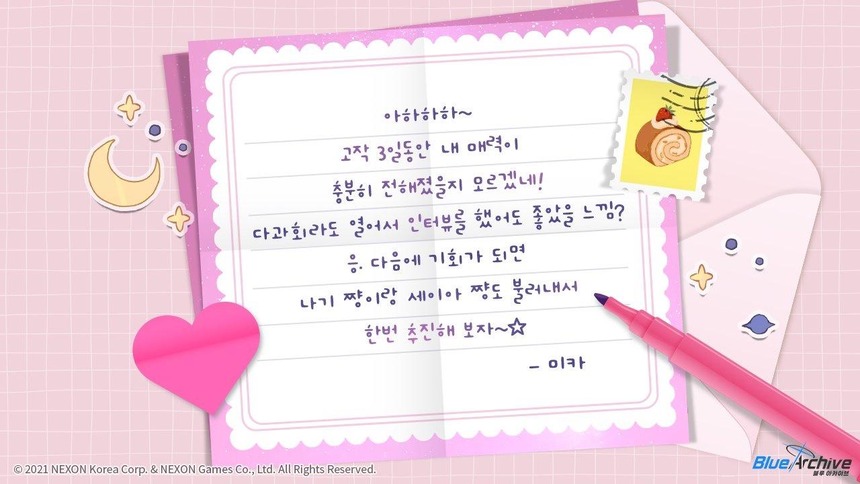 아하하하~
고작 3일동안 내 매력이
충분히 전해졌을지 모르겠네!
다과회라도 열어서 인터뷰를 했어도 좋았을 느낌?
응. 다음에 기회가 되면
나기 쨩이랑 세이아 쨩도 불러내서
한번 추진해 보자~☆
- 미카
© 2021 NEXON Korea Corp. & NEXON Games Co., Ltd. All Rights Reserved.
Blue Archive
블루 아카이브